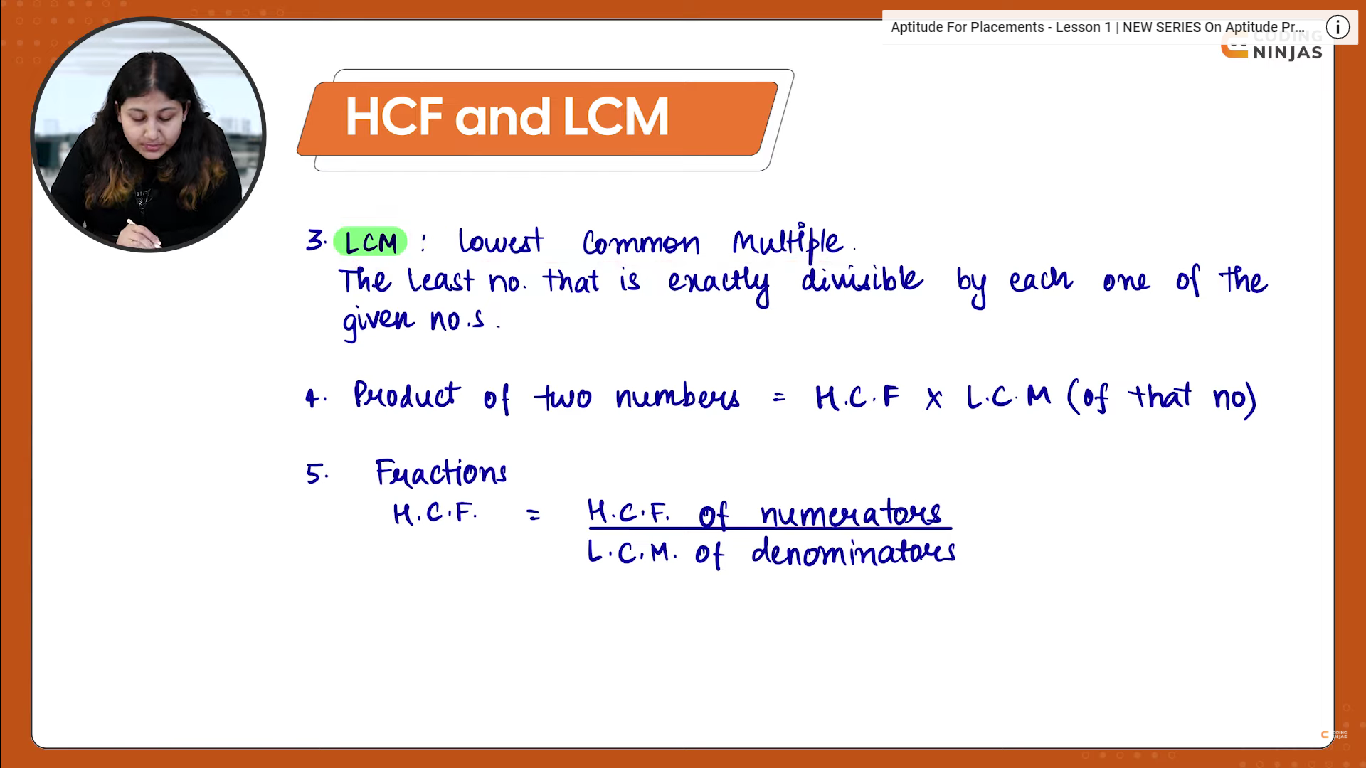 Aptitude For Placements - Lesson 1 | NEW SERIES On Aptitude Pr...
CODING
NINJAS
HCF and LCM
3. LCM : Lowest Common Multiple.
The least no. that is exactly divisible by each one of the
given no.s.
4. Product of two numbers = H.C.F x L.C.M (of that no)
5. Fractions
H.C.F. = H.C.F. of numerators
L.C.M. of denominators
CODING
NINJAS